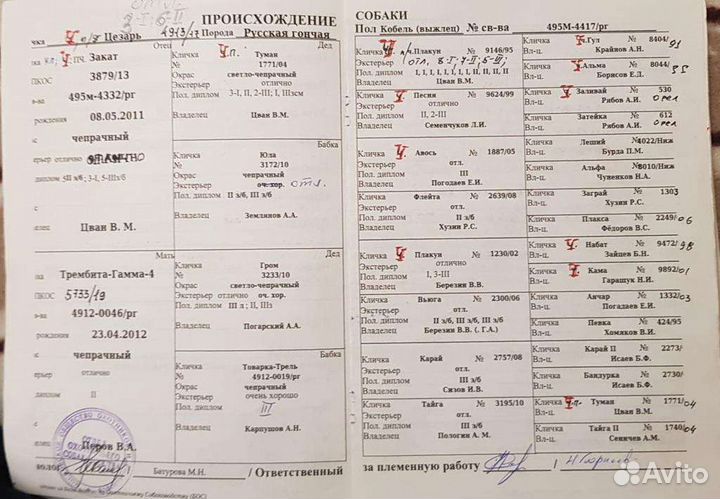 ПРОИСХОЖДЕНИЕ СОБАКИ
чка ч. п/п Цезарь 4913/17 Порода Русская гончая
Пол Кобель (выжлец) № св-ва 495М-4417/рг
Отец
ч.пч. Закат
ПКОС 3879/13
495м-4332/рг
рождения 08.05.2011
чепрачный
ерьер отлично
диплом 5II з/б; 3-I, 5-IIIз/б
Цван В. М.
Мать
Трембита-Гамма-4
ПКОС 5733/19
4912-0046/рг
23.04.2012
чепрачный
ерьер отлично
диплом II
Перов В.А.
Дед
Кличка ч.п. Туман
№ 1771/04
Окрас светло-чепрачный
Экстерьер отлично
Пол. диплом 3-I, II, 2-III; I, IIIзсм
Владелец Цван В.М.
Бабка
Кличка Юла
№ 3172/10
Окрас чепрачный
Экстерьер оч.хор. отл.
Пол. диплом II з/б, III з/б
Владелец Землянов А.А.
Дед
Кличка Гром
№ 3233/10
Окрас чепрачный
Экстерьер отлично оч. хор.
Пол. диплом III л; II, IIз
Владелец Погарский А.А.
Бабка
Кличка Товарка-Трель
№ 4912-0019/рг
Окрас чепрачный
Экстерьер очень хорошо
Пол. диплом III
Владелец Карпушов А.Н.
Кличка ч. п/ч. Плакун № 9146/95
Экстерьер отл, 8-I, 7-II, 5-III;
Пол. диплом I, I, I, I, I, I, I, II, II, II, II
Владелец Цван В.М.
Кличка ч. Песня № 9624/99
Экстерьер отлично
Пол. диплом II, 2-III
Владелец Семенчуков Л.И.
Кличка ч. Авось № 1887/05
Экстерьер отл.
Пол. диплом III
Владелец Погодаев Е.И.
Кличка Флейта № 2639/08
Экстерьер отл.
Пол. диплом II з/б
Владелец Хузин Р.С.
Кличка ч. Плакун № 1230/02
Экстерьер отлично
Пол. диплом I, 3-III
Владелец Березин В.В.
Кличка Вьюга № 2300/06
Экстерьер отл.
Пол. диплом II з/б, III з/б, III з/б
Владелец Березин В.В. (.Г.А.)
Кличка Карай № 2757/08
Экстерьер отл.
Пол. диплом III з/б
Владелец Сизов И.В.
Кличка Тайга № 3195/10
Экстерьер отл.
Пол. диплом III з/б
Владелец Пологин А. М.
Кличка ч. Гул № 8404/91
Вл-ц. Крайнов А.Н.
Кличка ч. Альма № 8044/
Вл-ц. Борисов Е.Д.
Кличка ч. Заливай № 530
Вл-ц. Рябов А.И. Орел
Кличка Затейка № 612
Вл-ц. Рябов А.И. Орел
Кличка Леший № 4022/Ниж
Вл-ц. Бурда П.М.
Кличка Альфа № 8010/Ниж
Вл-ц. Чуненков Н.А.
Кличка Заграй № 1303
Вл-ц. Хузин Р.С.
Кличка Плакса № 2249/06
Вл-ц. Фёдоров В.С.
Кличка ч. Набат № 9472/98
Вл-ц. Зайцев Б.Н.
Кличка ч. Кама № 9892/01
Вл-ц. Гаращук Н.И.
Кличка Анчар № 1332/03
Вл-ц. Погодаев Е.И.
Кличка Певка № 424/95
Вл-ц. Хомяков В.И.
Кличка Карай II № 2273/
Вл-ц. Исаев Б.Ф.
Кличка Бандурка № 2730/
Вл-ц. Исаев Б.Ф.
Кличка ч.п. Туман № 1771/04
Вл-ц. Цван В.М.
Кличка Тайга II № 1740/04
Вл-ц. Сеничев А.М.
Батурова М.Н. / Ответственный за племенную работу
Avito